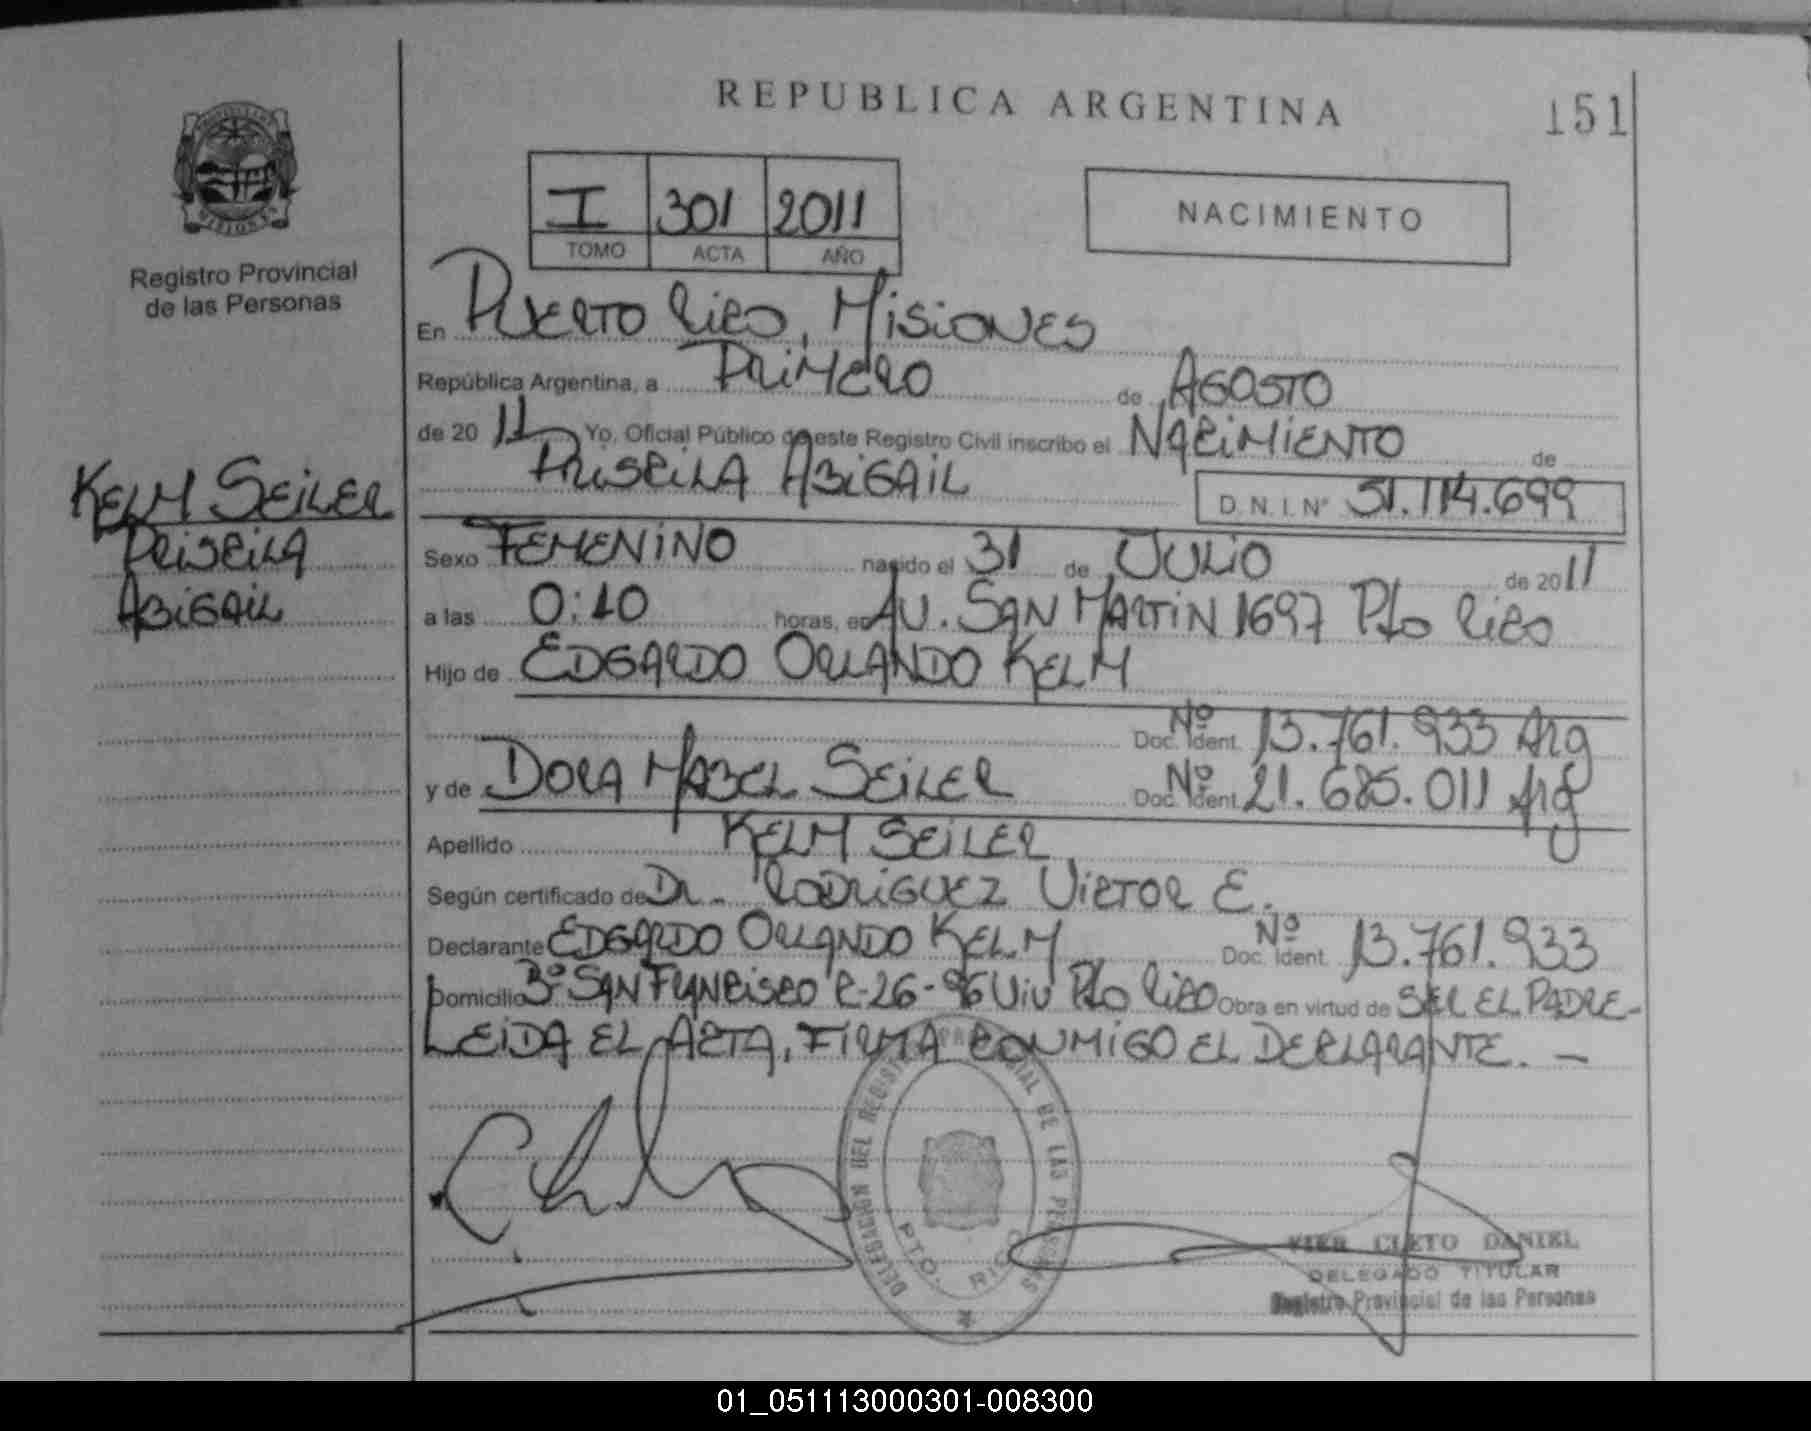 REPUBLICA ARGENTINA
151
I 301 2011
TOMO ACTA AÑO
NACIMIENTO
Registro Provincial
de las Personas
En PUERTO RICO, MISIONES
República Argentina, a PRIMERO de AGOSTO
de 20 11 Yo, Oficial Público de este Registro Civil inscribo el NACIMIENTO de
PRISCILA ABIGAIL D.N.I. Nº 51.114.699
KELM SEILER
PRISCILA
ABIGAIL
Sexo FEMENINO nacido el 31 de JULIO de 20 11
a las 0:10 horas, en AV. SAN MARTIN 1697 Pto RICO
Hijo de EDGARDO ORLANDO KELM
Nº
Doc. Ident. 13.761.933 Arg
y de DORA MABEL SEILER Nº Doc. Ident. 21.685.011 Arg
Apellido KELM SEILER
Según certificado de Dr. RODRIGUEZ VICTOR E.
Declarante EDGARDO ORLANDO KELM Nº Doc. Ident. 13.761.933
Domicilio Bº SAN FRANCISCO C-26-96 Viv Pto RICO Obra en virtud de SER EL PADRE-
LEIDA EL ACTA, FIRMA CONMIGO EL DECLARANTE. —
DELEGACION DEL REGISTRO PROVINCIAL DE LAS PERSONAS
PTO. RICO
CLETO DANIEL
DELEGADO TITULAR
Registro Provincial de las Personas
01_051113000301-008300